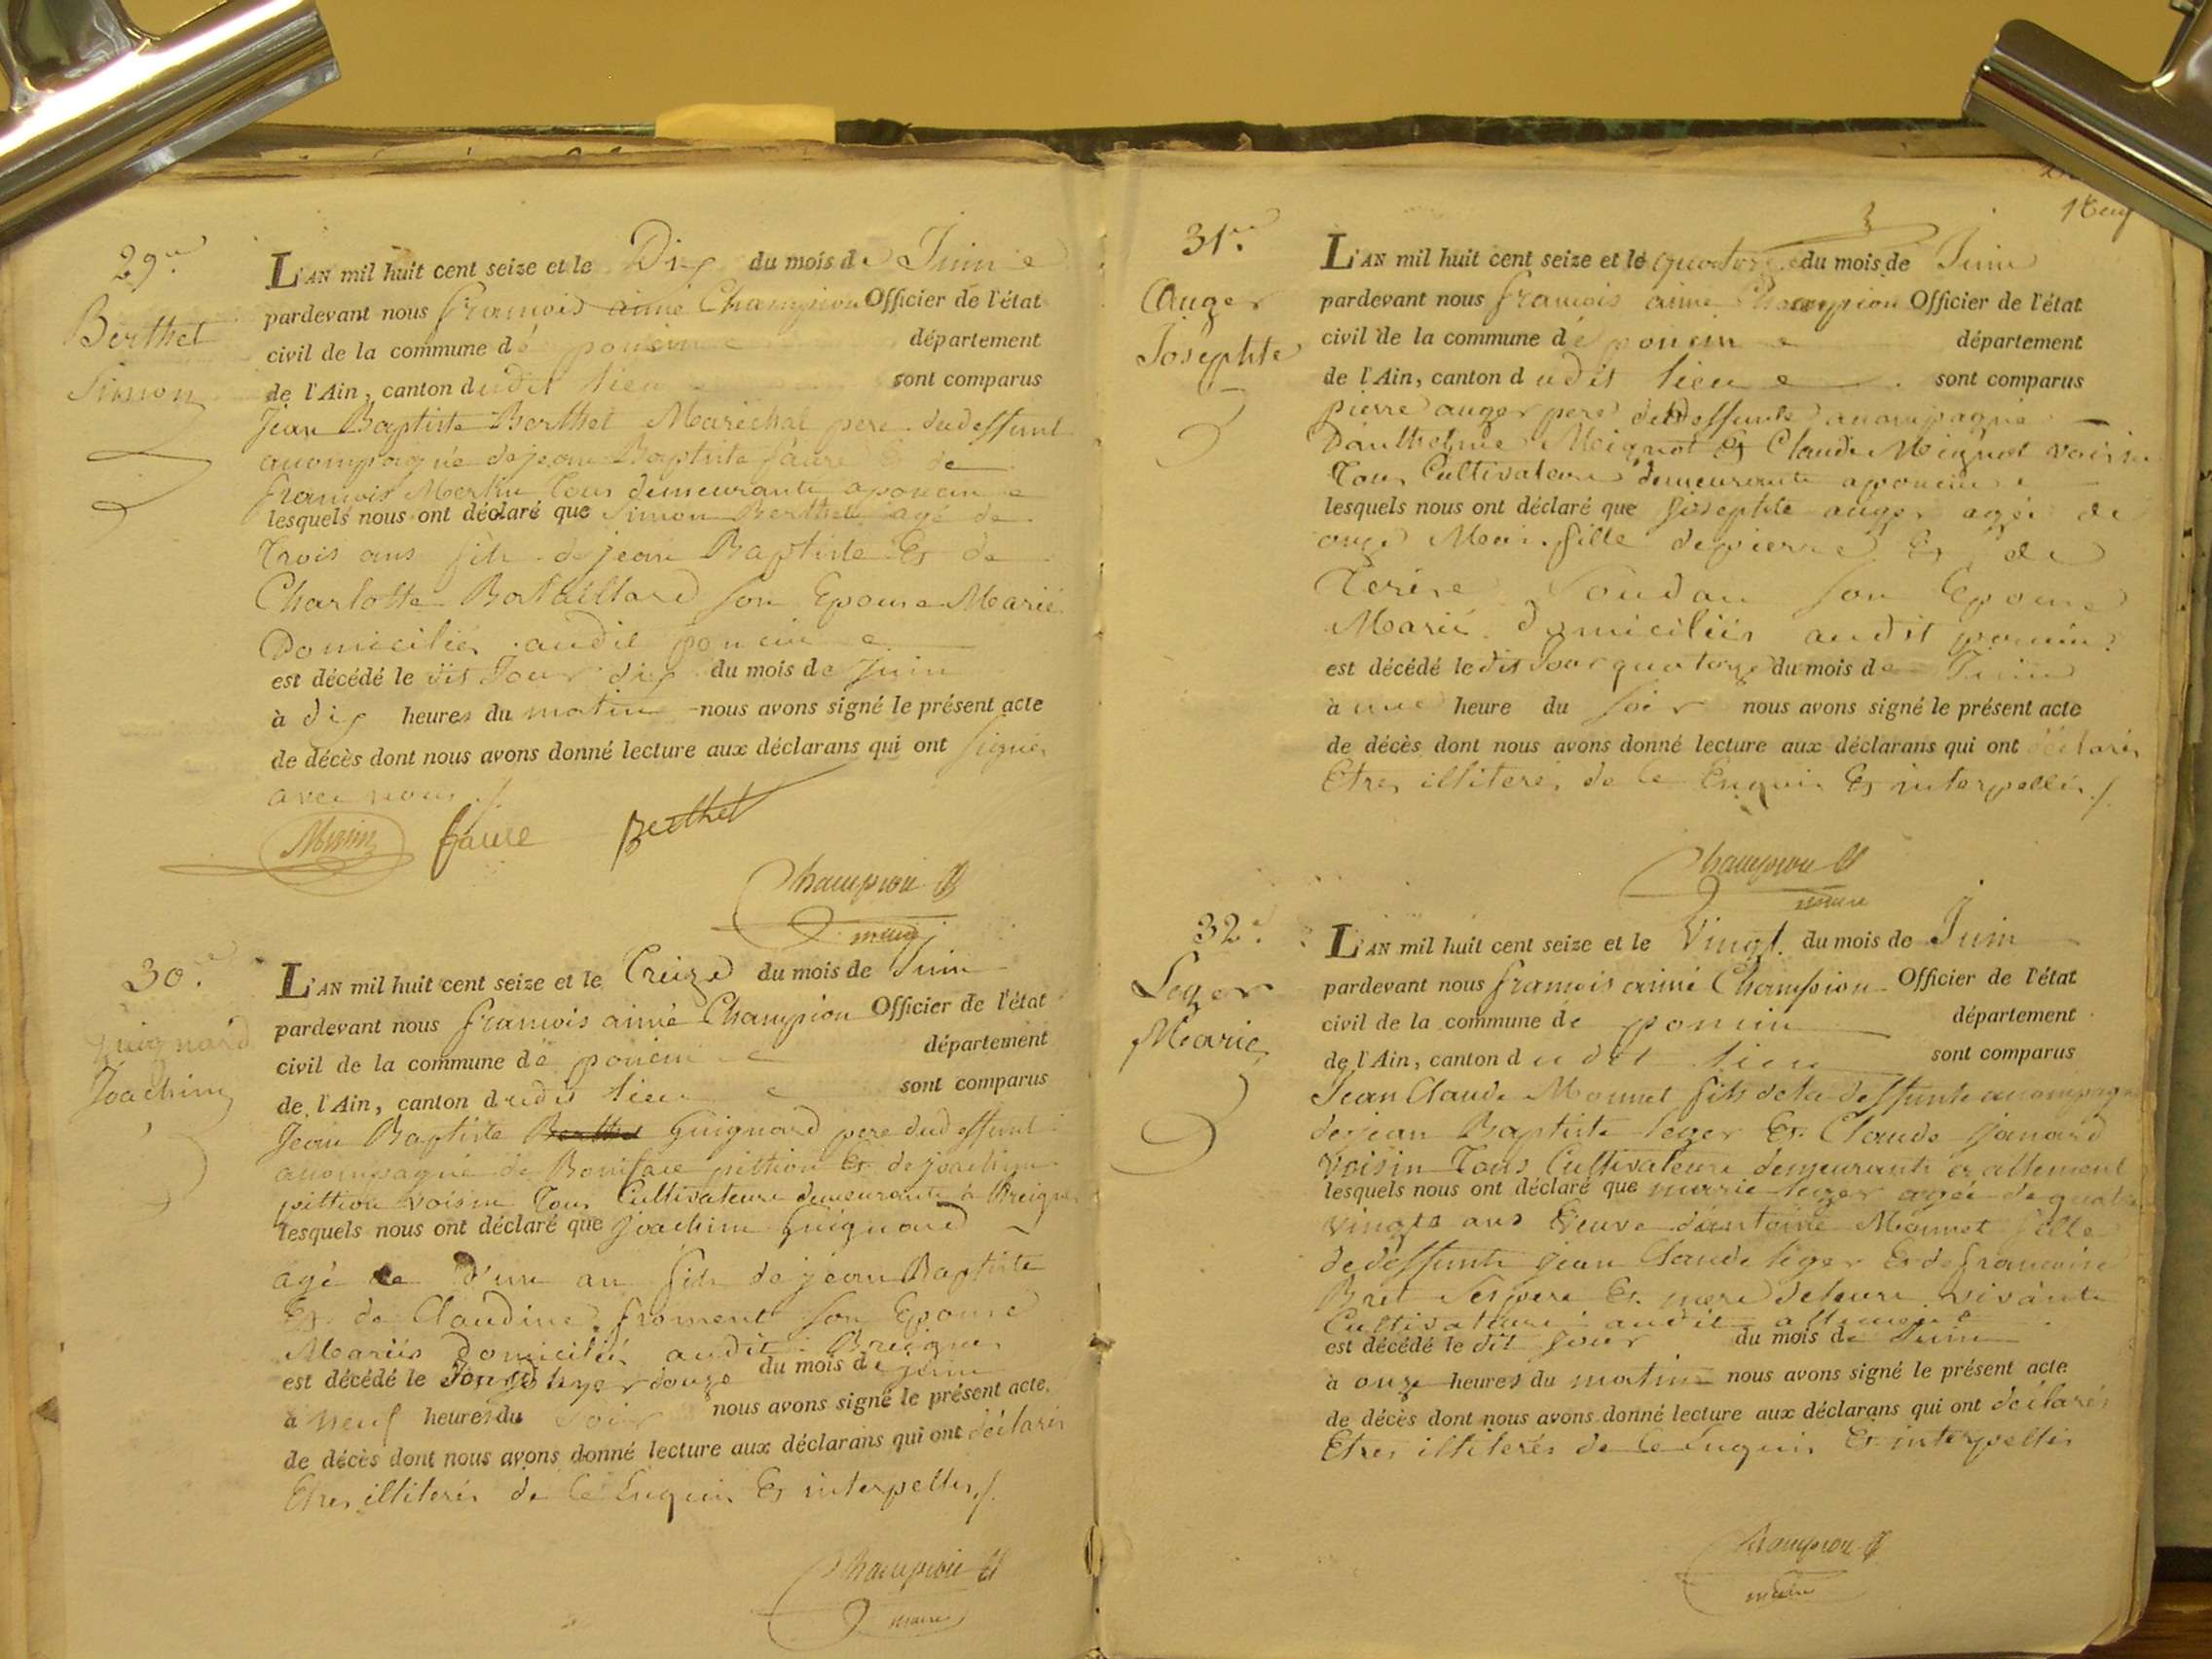 29.e
Berthet
Simon
L'AN mil huit cent seize et le Dix du mois de Juin
pardevant nous françois aimé Champion Officier de l'état
civil de la commune de poncin département
de l'Ain, canton dudit lieu sont comparus
Jean Baptiste Berthet Maréchal pere dudeffunt
acompagné de jean Baptiste faure & de
françois Merlin tous demeurants a poncin
lesquels nous ont déclaré que Simon Berthet agé de
Trois ans fils de jean Baptiste Et de
Charlotte Bataillard son Epouse Marié
Domiciliés audit poncin
est décédé le dit Jour dix du mois de Juin
à dix heures du matin nous avons signé le présent acte
de décès dont nous avons donné lecture aux déclarans qui ont signés
avec nous ./.
faure Berthet
Champion
maire
30.e
Guignard
Joachim
L'AN mil huit cent seize et le Treize du mois de Juin
pardevant nous françois aimé Champion Officier de l'état
civil de la commune de poncin département
de l'Ain, canton dudit lieu sont comparus
Jean Baptiste Berthet Guignard pere dudeffunt
acompagné de Boniface pittion Et de joachim
pittion voisin Tous Cultivateurs demeurants à Breignes
lesquels nous ont déclaré que joachim Guignard
agé de d'un an fils de jean Baptiste
Et de Claudine froment son Epouse
Mariés Domiciliés audit Breignes
est décédé le Jour d'hyer douze du mois de juin
à neuf heures du Soir nous avons signé le présent acte.
de décès dont nous avons donné lecture aux déclarans qui ont déclarés
Etres illiterés de Ce Enquis Et interpellés ./.
Champion
maire
31.e
Auger
Josephte
L'AN mil huit cent seize et le quatorze du mois de Juin
pardevant nous françois aimé Champion Officier de l'état
civil de la commune de poncin département
de l'Ain, canton dudit lieu sont comparus
pierre auger pere deladeffunte acompagné
Danthelme Meignot Et Claude Meignot voisin
Tous Cultivateurs demeurants a poncin
lesquels nous ont déclaré que Josephte auger agée de
onze Mois fille de pierre Et de
Terése Soudan son Epouse
Marié domiciliés audit poncin
est décédé le dit Jour quatorze du mois de Juin
à une heure du Soir nous avons signé le présent acte
de décès dont nous avons donné lecture aux déclarans qui ont déclarés
Etres illiterés de Ce Enquis Et interpellés ./.
Champion
maire
32.e
Leger
Marie
L'AN mil huit cent seize et le Vingt du mois de Juin
pardevant nous françois aimé Champion Officier de l'état
civil de la commune de poncin département
de l'Ain, canton dudit lieu sont comparus
Jean Claude Monnet fils de la deffunte acompagné
de jean Baptiste leger Et Claude janard
Voisin Tous Cultivateurs demeurants a allement
lesquels nous ont déclaré que marie leger agée de quatre
vingts ans Veuve d'antoine Monnet fille
de deffunts jean Claude leger Et de francoise
Bret Ses pere Et mere deleurs vivants
Cultivateurs audit allement
est décédé le dit jour du mois de Juin
à onze heures du matin nous avons signé le présent acte
de décès dont nous avons donné lecture aux déclarans qui ont déclarés
Etres illiterés de Ce Enquis Et interpellés
Champion
maire